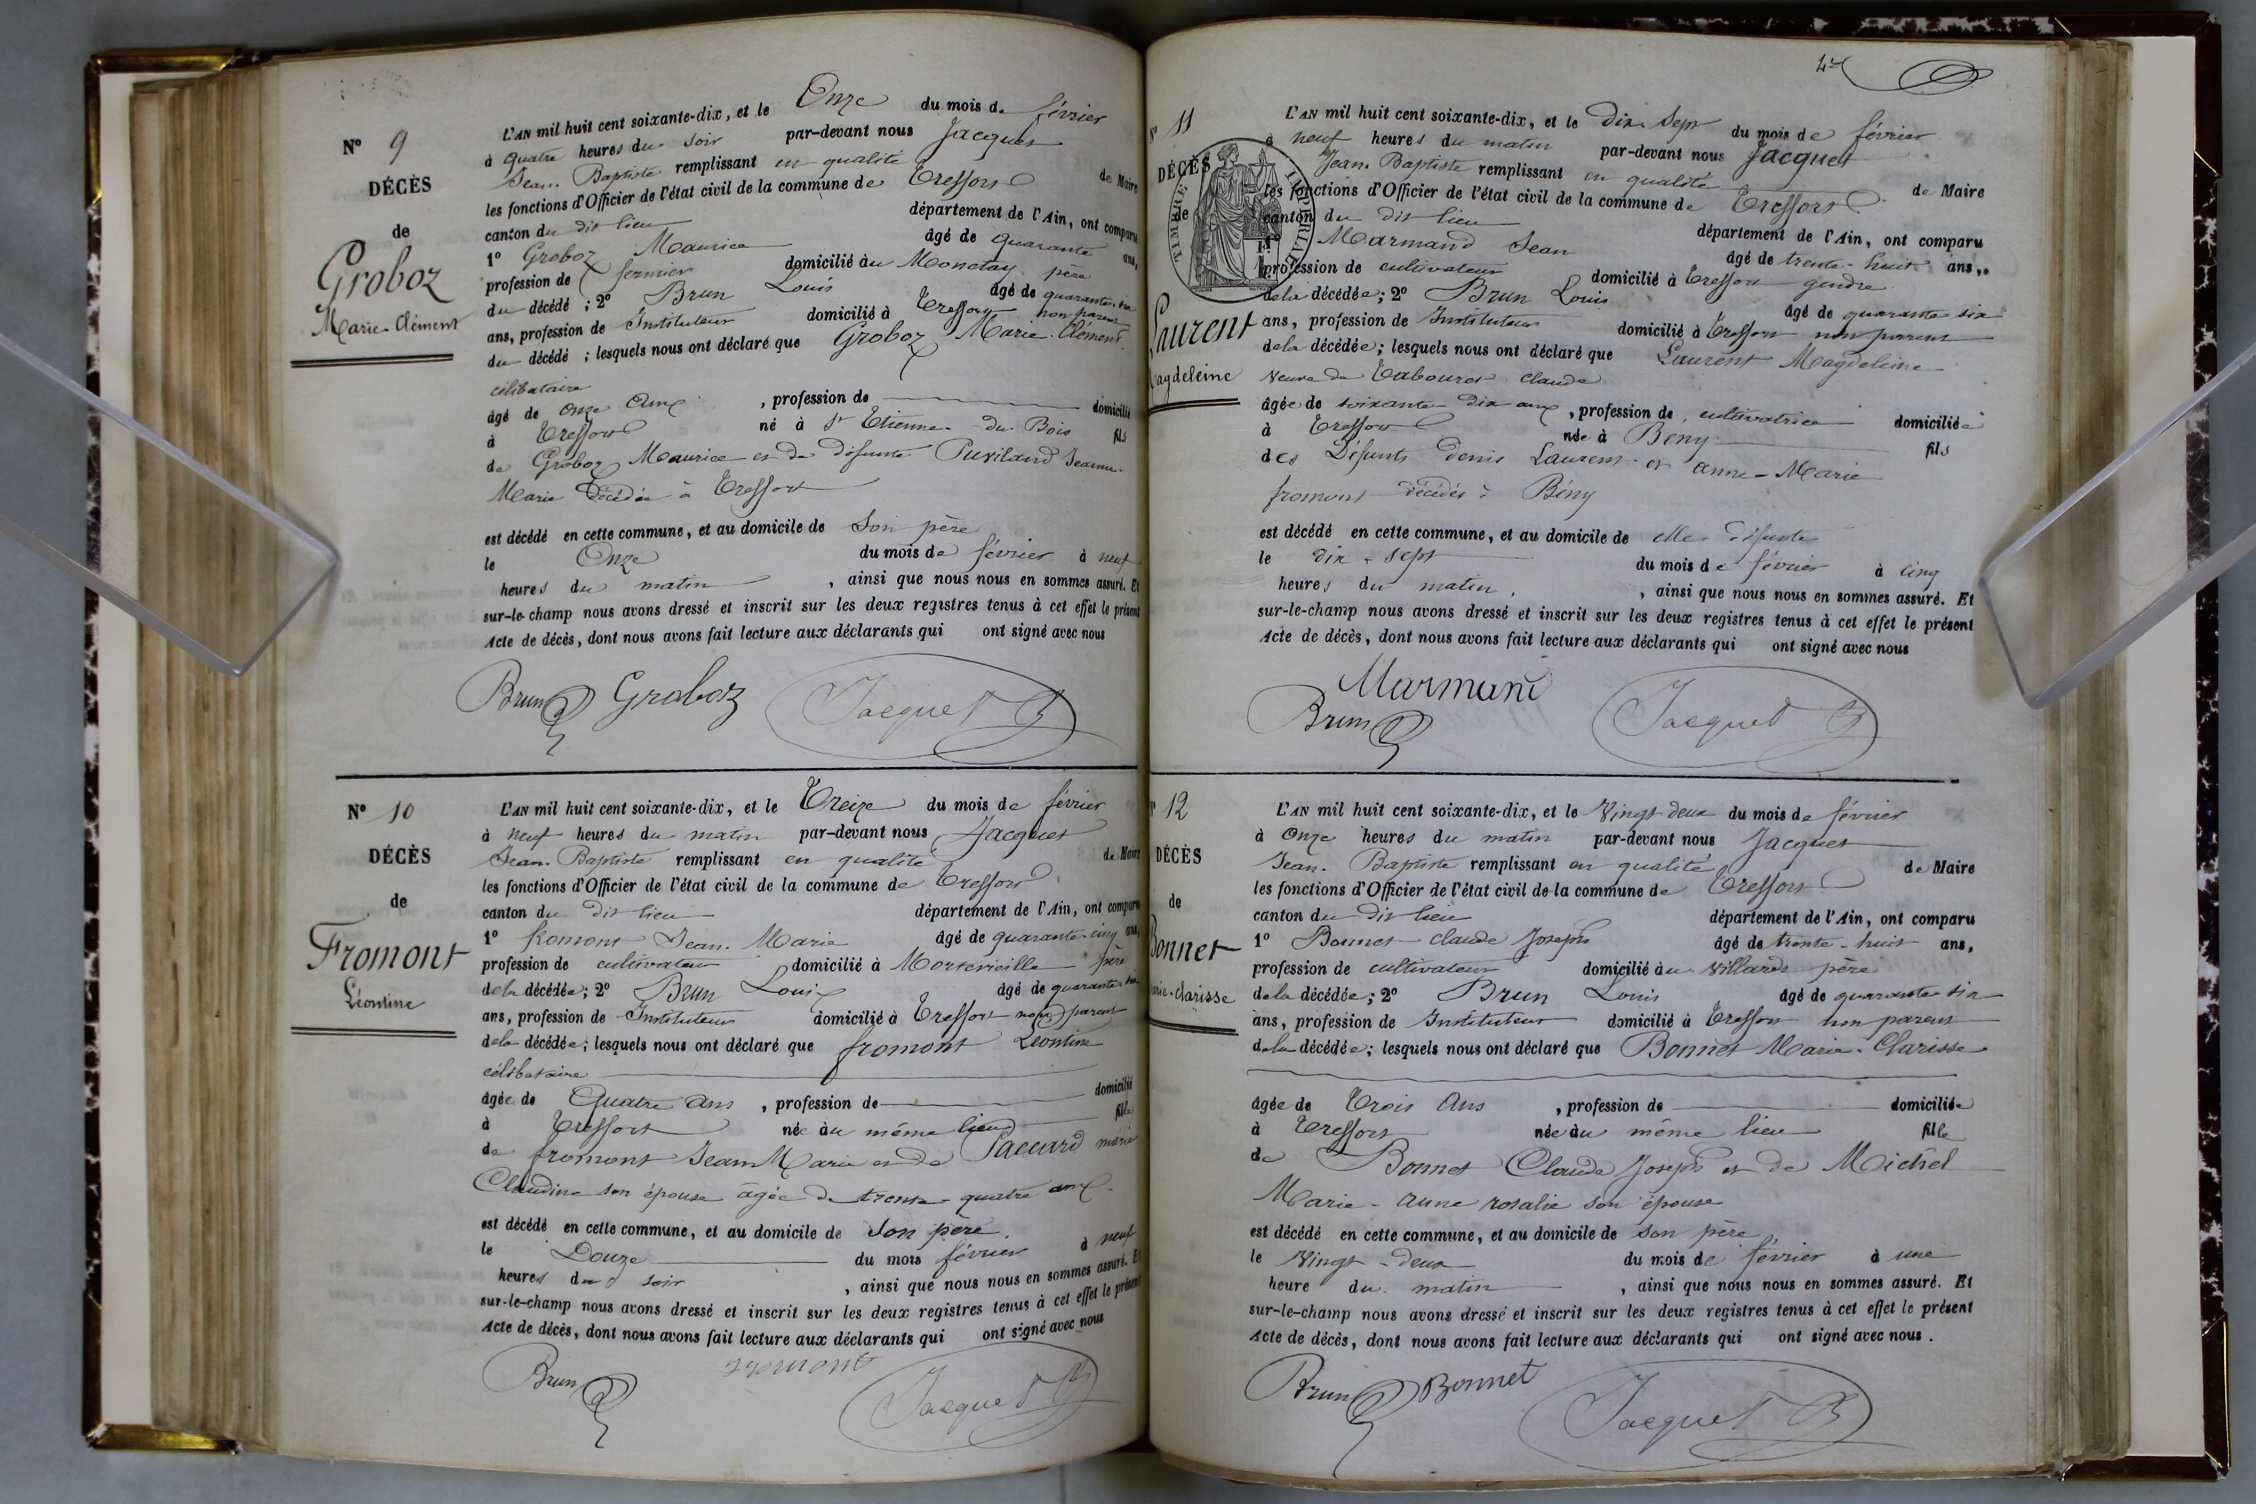 N° 9
DÉCÈS
de
Groboz
Marie-Clément
L'AN mil huit cent soixante-dix, et le Onze du mois de février
à quatre heures du soir par-devant nous Jacquet
Jean-Baptiste remplissant en qualité de Maire
les fonctions d'Officier de l'état civil de la commune de Treffort
canton du dit lieu département de l'Ain, ont comparu
1° Groboz Maurice âgé de quarante ans,
profession de fermier domicilié au Monetay père
du décédé ; 2° Brun Louis âgé de quarante-six
ans, profession de Instituteur domicilié à Treffort non parent
du décédé ; lesquels nous ont déclaré que Groboz Marie-Clément
célibataire
âgé de onze ans , profession de domicilié
à Treffort né à St Etienne-du-Bois fils
de Groboz Maurice et de défunte Puvilland Jeanne-
Marie décédée à Treffort
est décédé en cette commune, et au domicile de Son père
le Onze du mois de février à neuf
heures du matin , ainsi que nous nous en sommes assuré. Et
sur-le-champ nous avons dressé et inscrit sur les deux registres tenus à cet effet le présent
Acte de décès, dont nous avons fait lecture aux déclarants qui ont signé avec nous
Brun Groboz Jacquet
N° 10
DÉCÈS
de
Fromont
Léontine
L'AN mil huit cent soixante-dix, et le Treize du mois de février
à neuf heures du matin par-devant nous Jacquet
Jean-Baptiste remplissant en qualité de Maire
les fonctions d'Officier de l'état civil de la commune de Treffort
canton du dit lieu département de l'Ain, ont comparu
1° fromont Jean-Marie âgé de quarante-cinq ans,
profession de cultivateur domicilié à père
de la décédée ; 2° Brun Louis âgé de quarante-six
ans, profession de Instituteur domicilié à Treffort non parent
de la décédée ; lesquels nous ont déclaré que fromont Léontine
célibataire
âgée de Quatre ans , profession de domicilié
à Treffort née au même lieu fille
de fromont Jean Marie et de Paccard marie
Claudine son épouse âgée de trente-quatre ans
est décédé en cette commune, et au domicile de Son père
le Douze du mois février à neuf
heures du soir , ainsi que nous nous en sommes assuré. Et
sur-le-champ nous avons dressé et inscrit sur les deux registres tenus à cet effet le présent
Acte de décès, dont nous avons fait lecture aux déclarants qui ont signé avec nous
Brun fromont Jacquet
4
N° 11
DÉCÈS
de
Laurent
Magdeleine
TIMBRE IMPERIAL
L'AN mil huit cent soixante-dix, et le dix-sept du mois de février
à neuf heures du matin par-devant nous Jacquet
Jean-Baptiste remplissant en qualité de Maire
les fonctions d'Officier de l'état civil de la commune de Treffort
canton du dit lieu département de l'Ain, ont comparu
1° Marmand Jean âgé de trente-huit ans,
profession de cultivateur domicilié à Treffort gendre
de la décédée ; 2° Brun Louis âgé de quarante six
ans, profession de Instituteur domicilié à Treffort non parent
de la décédée ; lesquels nous ont déclaré que Laurent Magdeleine
veuve de Tabouret claude
âgée de soixante-dix ans , profession de cultivatrice domiciliée
à Treffort née à Beny fils
des Défunts Denis Laurent et anne-Marie
fromont décédés à Bény
est décédé en cette commune, et au domicile de elle-défunte
le dix-sept du mois de février à cinq
heures du matin , ainsi que nous nous en sommes assuré. Et
sur-le-champ nous avons dressé et inscrit sur les deux registres tenus à cet effet le présent
Acte de décès, dont nous avons fait lecture aux déclarants qui ont signé avec nous
Marmand
Brun Jacquet
N° 12
DÉCÈS
de
Bonnet
Marie-Clarisse
L'AN mil huit cent soixante-dix, et le Vingt-deux du mois de février
à Onze heures du matin par-devant nous Jacquet
Jean-Baptiste remplissant en qualité de Maire
les fonctions d'Officier de l'état civil de la commune de Treffort
canton du dit lieu département de l'Ain, ont comparu
1° Bonnet claude Joseph âgé de trente-huit ans,
profession de cultivateur domicilié au villard père
de la décédée ; 2° Brun Louis âgé de quarante six
ans, profession de Instituteur domicilié à Treffort non parent
de la décédée ; lesquels nous ont déclaré que Bonnet Marie-Clarisse
âgée de Trois ans , profession de domiciliée
à Treffort née au même lieu fille
de Bonnet Claude Joseph et de Michel
Marie-anne rosalie son épouse
est décédé en cette commune, et au domicile de son père
le Vingt-deux du mois de février à une
heure du matin , ainsi que nous nous en sommes assuré. Et
sur-le-champ nous avons dressé et inscrit sur les deux registres tenus à cet effet le présent
Acte de décès, dont nous avons fait lecture aux déclarants qui ont signé avec nous.
Brun Bonnet Jacquet